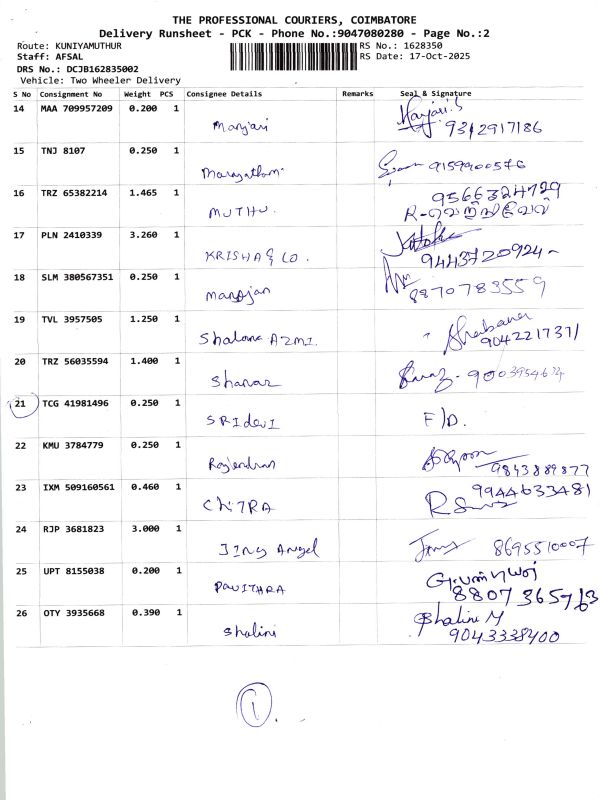 THE PROFESSIONAL COURIERS, COIMBATORE
Delivery Runsheet - PCK - Phone No.:9047080280 - Page No.:2
Route: KUNIYAMUTHUR RS No.: 1628350
Staff: AFSAL RS Date: 17-Oct-2025
DRS No.: DCJB162835002
Vehicle: Two Wheeler Delivery
S No Consignment No Weight PCS Consignee Details Remarks Seal & Signature
14 MAA 709957209 0.200 1
Manjari Manjari.S 9312917186
15 TNJ 8107 0.250 1
9159900576
16 TRZ 65382214 1.465 1 9566324729
MUTHU. R-வெற்றிவேல்
17 PLN 2410339 3.260 1
KRISHA & CO. 9443720924
18 SLM 380567351 0.250 1
Manojan 8870783559
19 TVL 3957505 1.250 1 Shabana
Shabana AZMI. 9042217371
20 TRZ 56035594 1.400 1
Shanaz 9003954674
21 TCG 41981496 0.250 1
SRIdevI F/D.
22 KMU 3784779 0.250 1
Rajendran 9843889877
23 IXM 509160561 0.460 1 9944633481
CHITRA
24 RJP 3681823 3.000 1
Jins Angel 8695510007
25 UPT 8155038 0.200 1
PAVITHRA 8807365763
26 OTY 3935668 0.390 1 Shalini M
Shalini 9043338400
1.